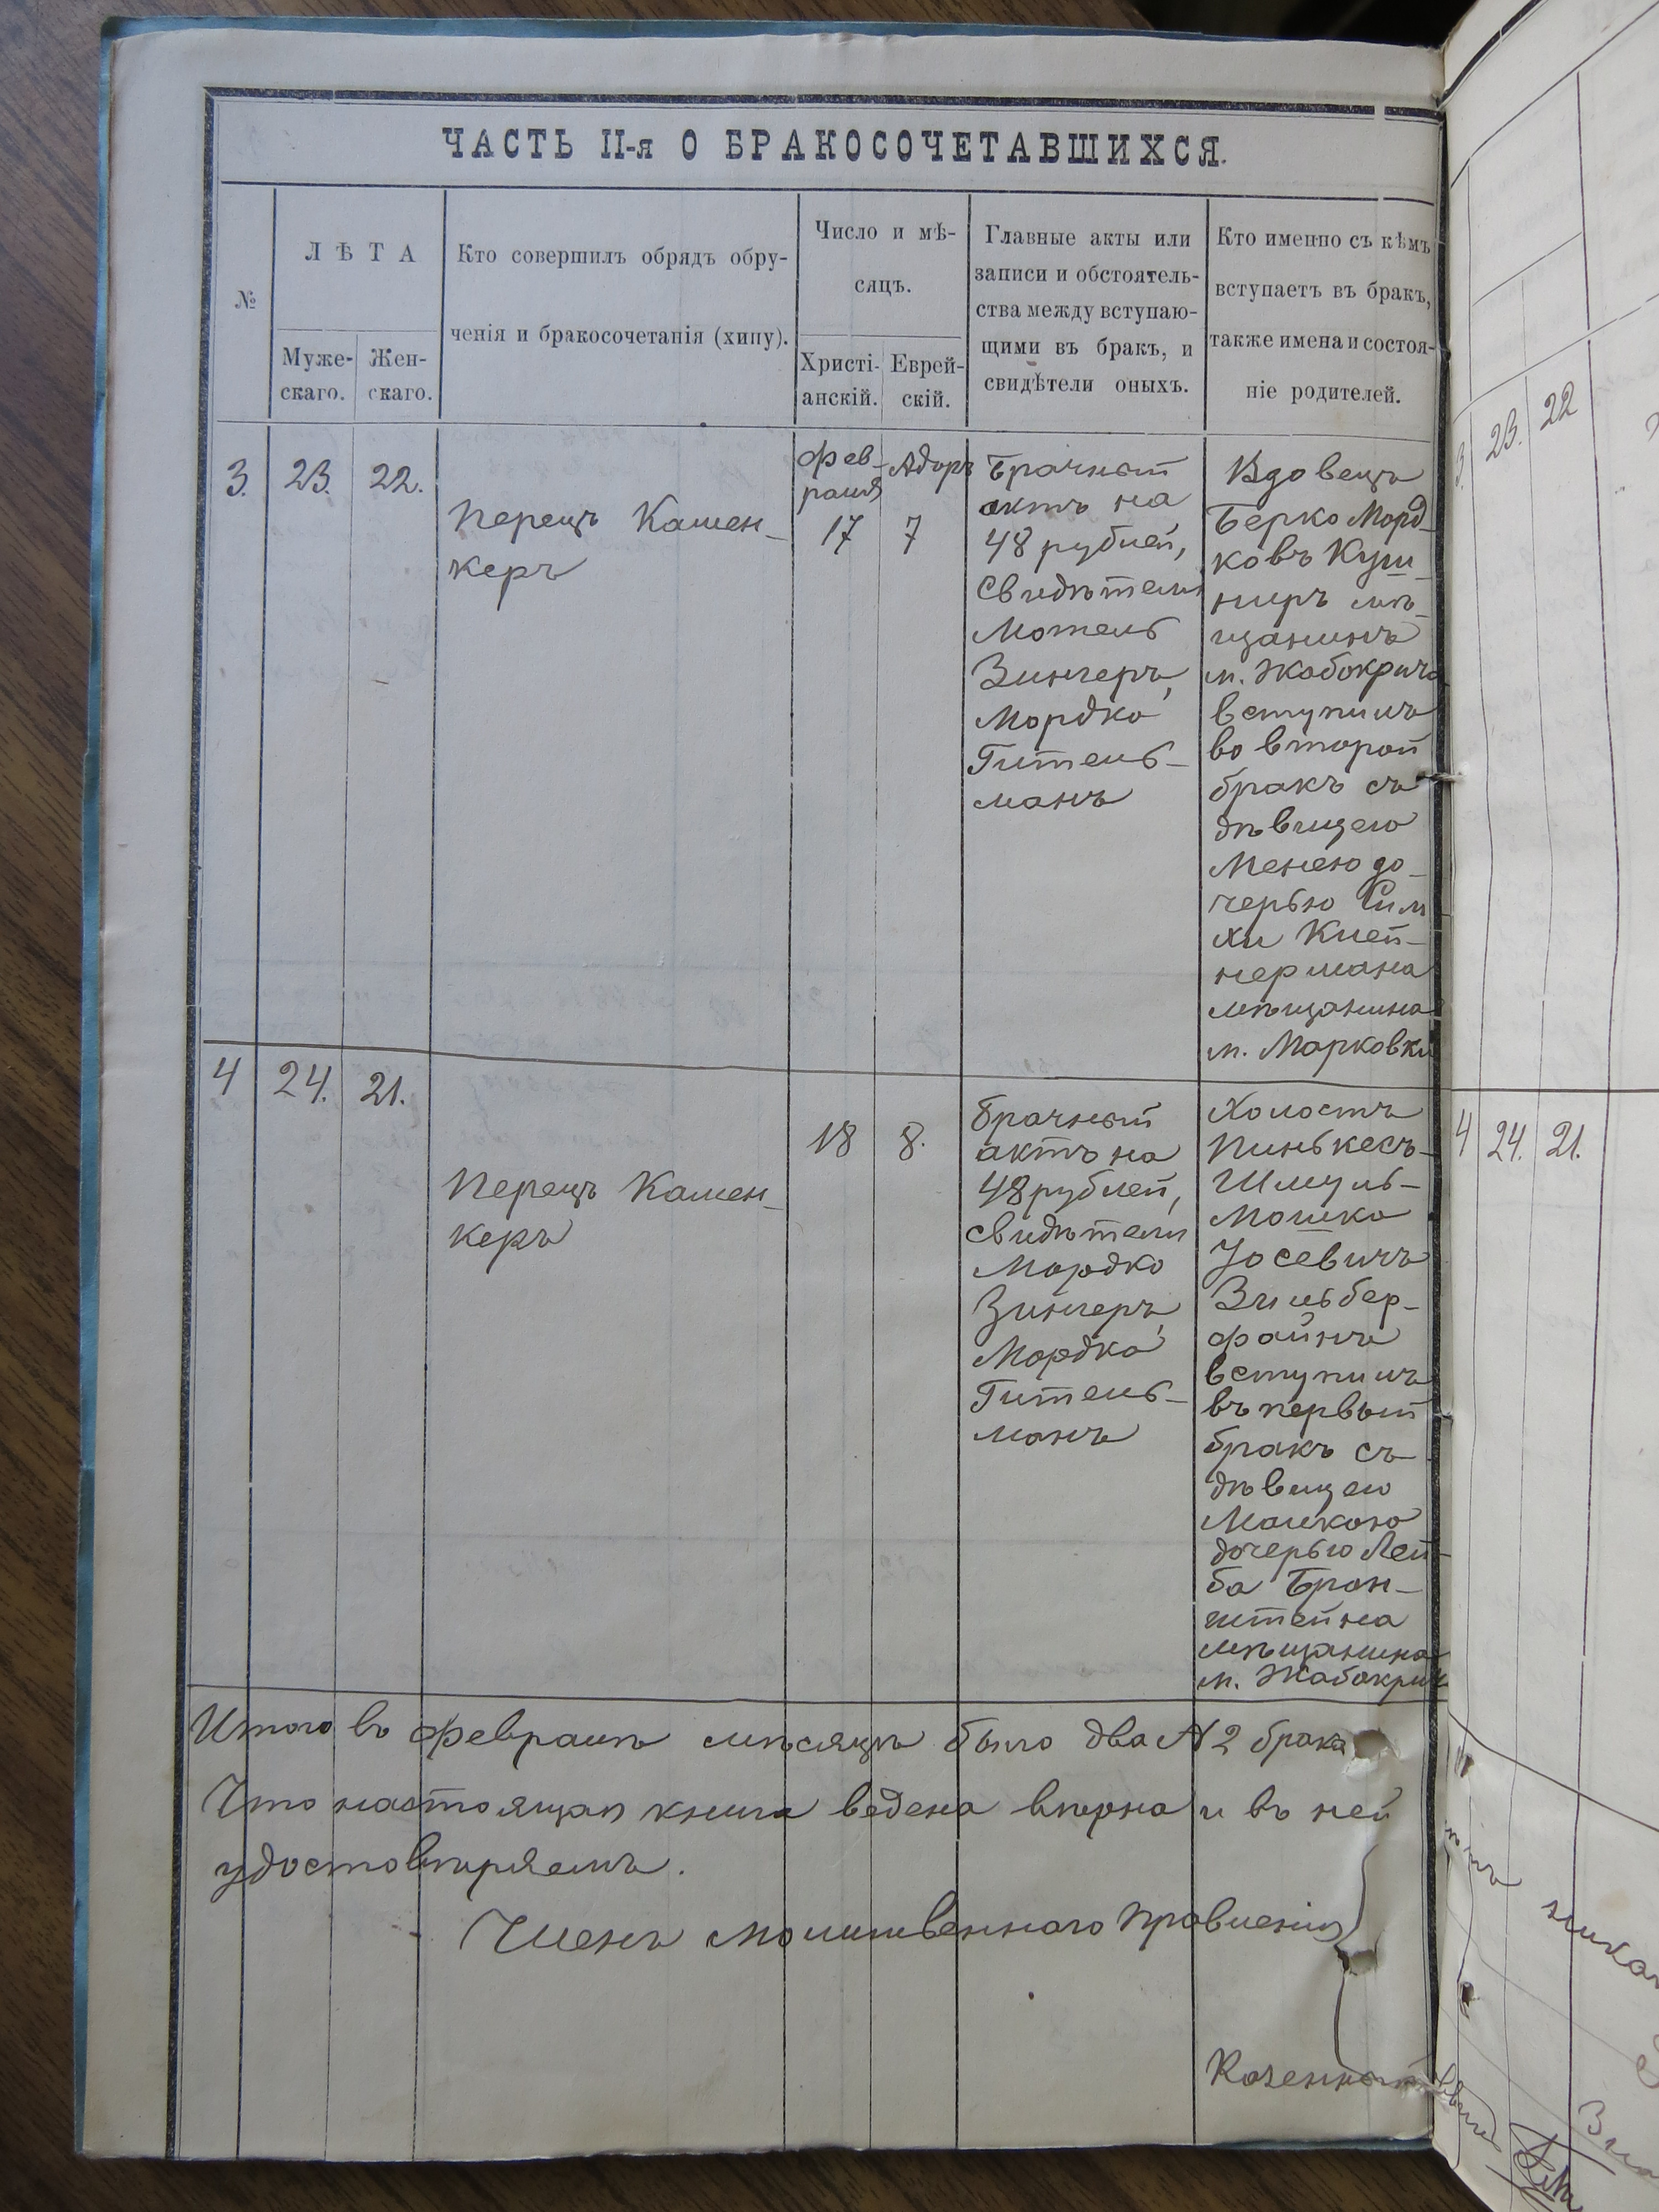 ЧАСТЬ II-я О БРАКОСОЧЕТАВШИХСЯ.
№
ЛѢТА
Муже-
скаго.
Жен-
скаго.
Кто совершилъ обрядъ обру-
ченія и бракосочетанія (хипу).
Число и мѣ-
сяцъ.
Христі-
анскій.
Еврей-
скій.
Главные акты или
записи и обстоятель-
ства между вступаю-
щими въ бракъ, и
свидѣтели оныхъ.
Кто именно съ кѣмъ
вступаетъ въ бракъ,
также имена и состоя-
ніе родителей.
3.
23.
22.
Перецъ Камен-
керъ
Фев-
раля
17
Адоръ
7
Брачный
актъ на
48 рублей,
Свидѣтели
Мотель
Зингеръ,
Мордко
Гитель-
манъ
Вдовецъ
Берко Морд-
ковъ Куш-
ниръ мѣ-
щанинъ
м. Жабокрича
вступилъ
во второй
бракъ съ
дѣвицею
Менею до-
черью Сим-
хи Клей-
нермана
мѣщанина
м. Марковки
4
24.
21.
Перецъ Камен-
керъ
18
8.
Брачный
актъ на
48 рублей,
свидѣтели
Мордко
Зингеръ,
Мордко
Гитель-
манъ
Холостъ
Пинькесъ-
Шмуль-
Мошко
Іосевичъ
Зильбер-
файнъ
вступилъ
въ первый
бракъ съ
дѣвицею
Малкою
дочерью Лей-
ба Брон-
штейна
мѣщанина
м. Жабокрич
Итого въ Февралѣ мѣсяцѣ было два № 2 брака
Что настоящая книга ведена вѣрна и въ ней
удостовѣряемъ.
Членъ молитвеннаго Правленія
3.
23.
22
4
24.
21.